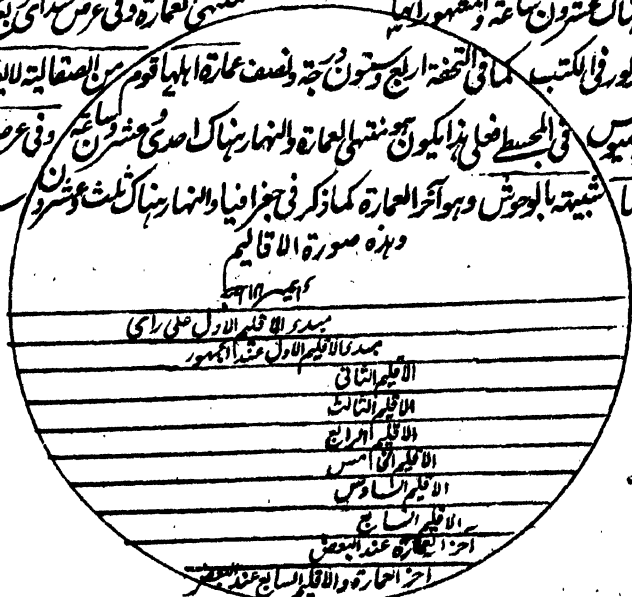 هناك عشرون ساعة والمشهور انها منتهى العمارة وفى عرض
كور فى الكتب كما فى التحفة اربع وستون درجة ونصف عمارة اهلها قوم من الصقالية لا
فى المجسطى فعلى هذا يكون هو منتهى العمارة والنهار هناك احدى وعشرون ساعة وفى عرض
شبيهة بالوحوش وهو آخر العمارة كما ذكر فى جغرافيا والنهار هناك ثلث وعشرون
وهذه صورة الاقاليم
مبدء الاقليم الاول على راى
مبدء الاقليم الاول عند الجمهور
الاقليم الثانى
الاقليم الثالث
الاقليم الرابع
الاقليم الخامس
الاقليم السادس
الاقليم السابع
آخر العمارة عند البعض
آخر العمارة والاقليم السابع عند البعض